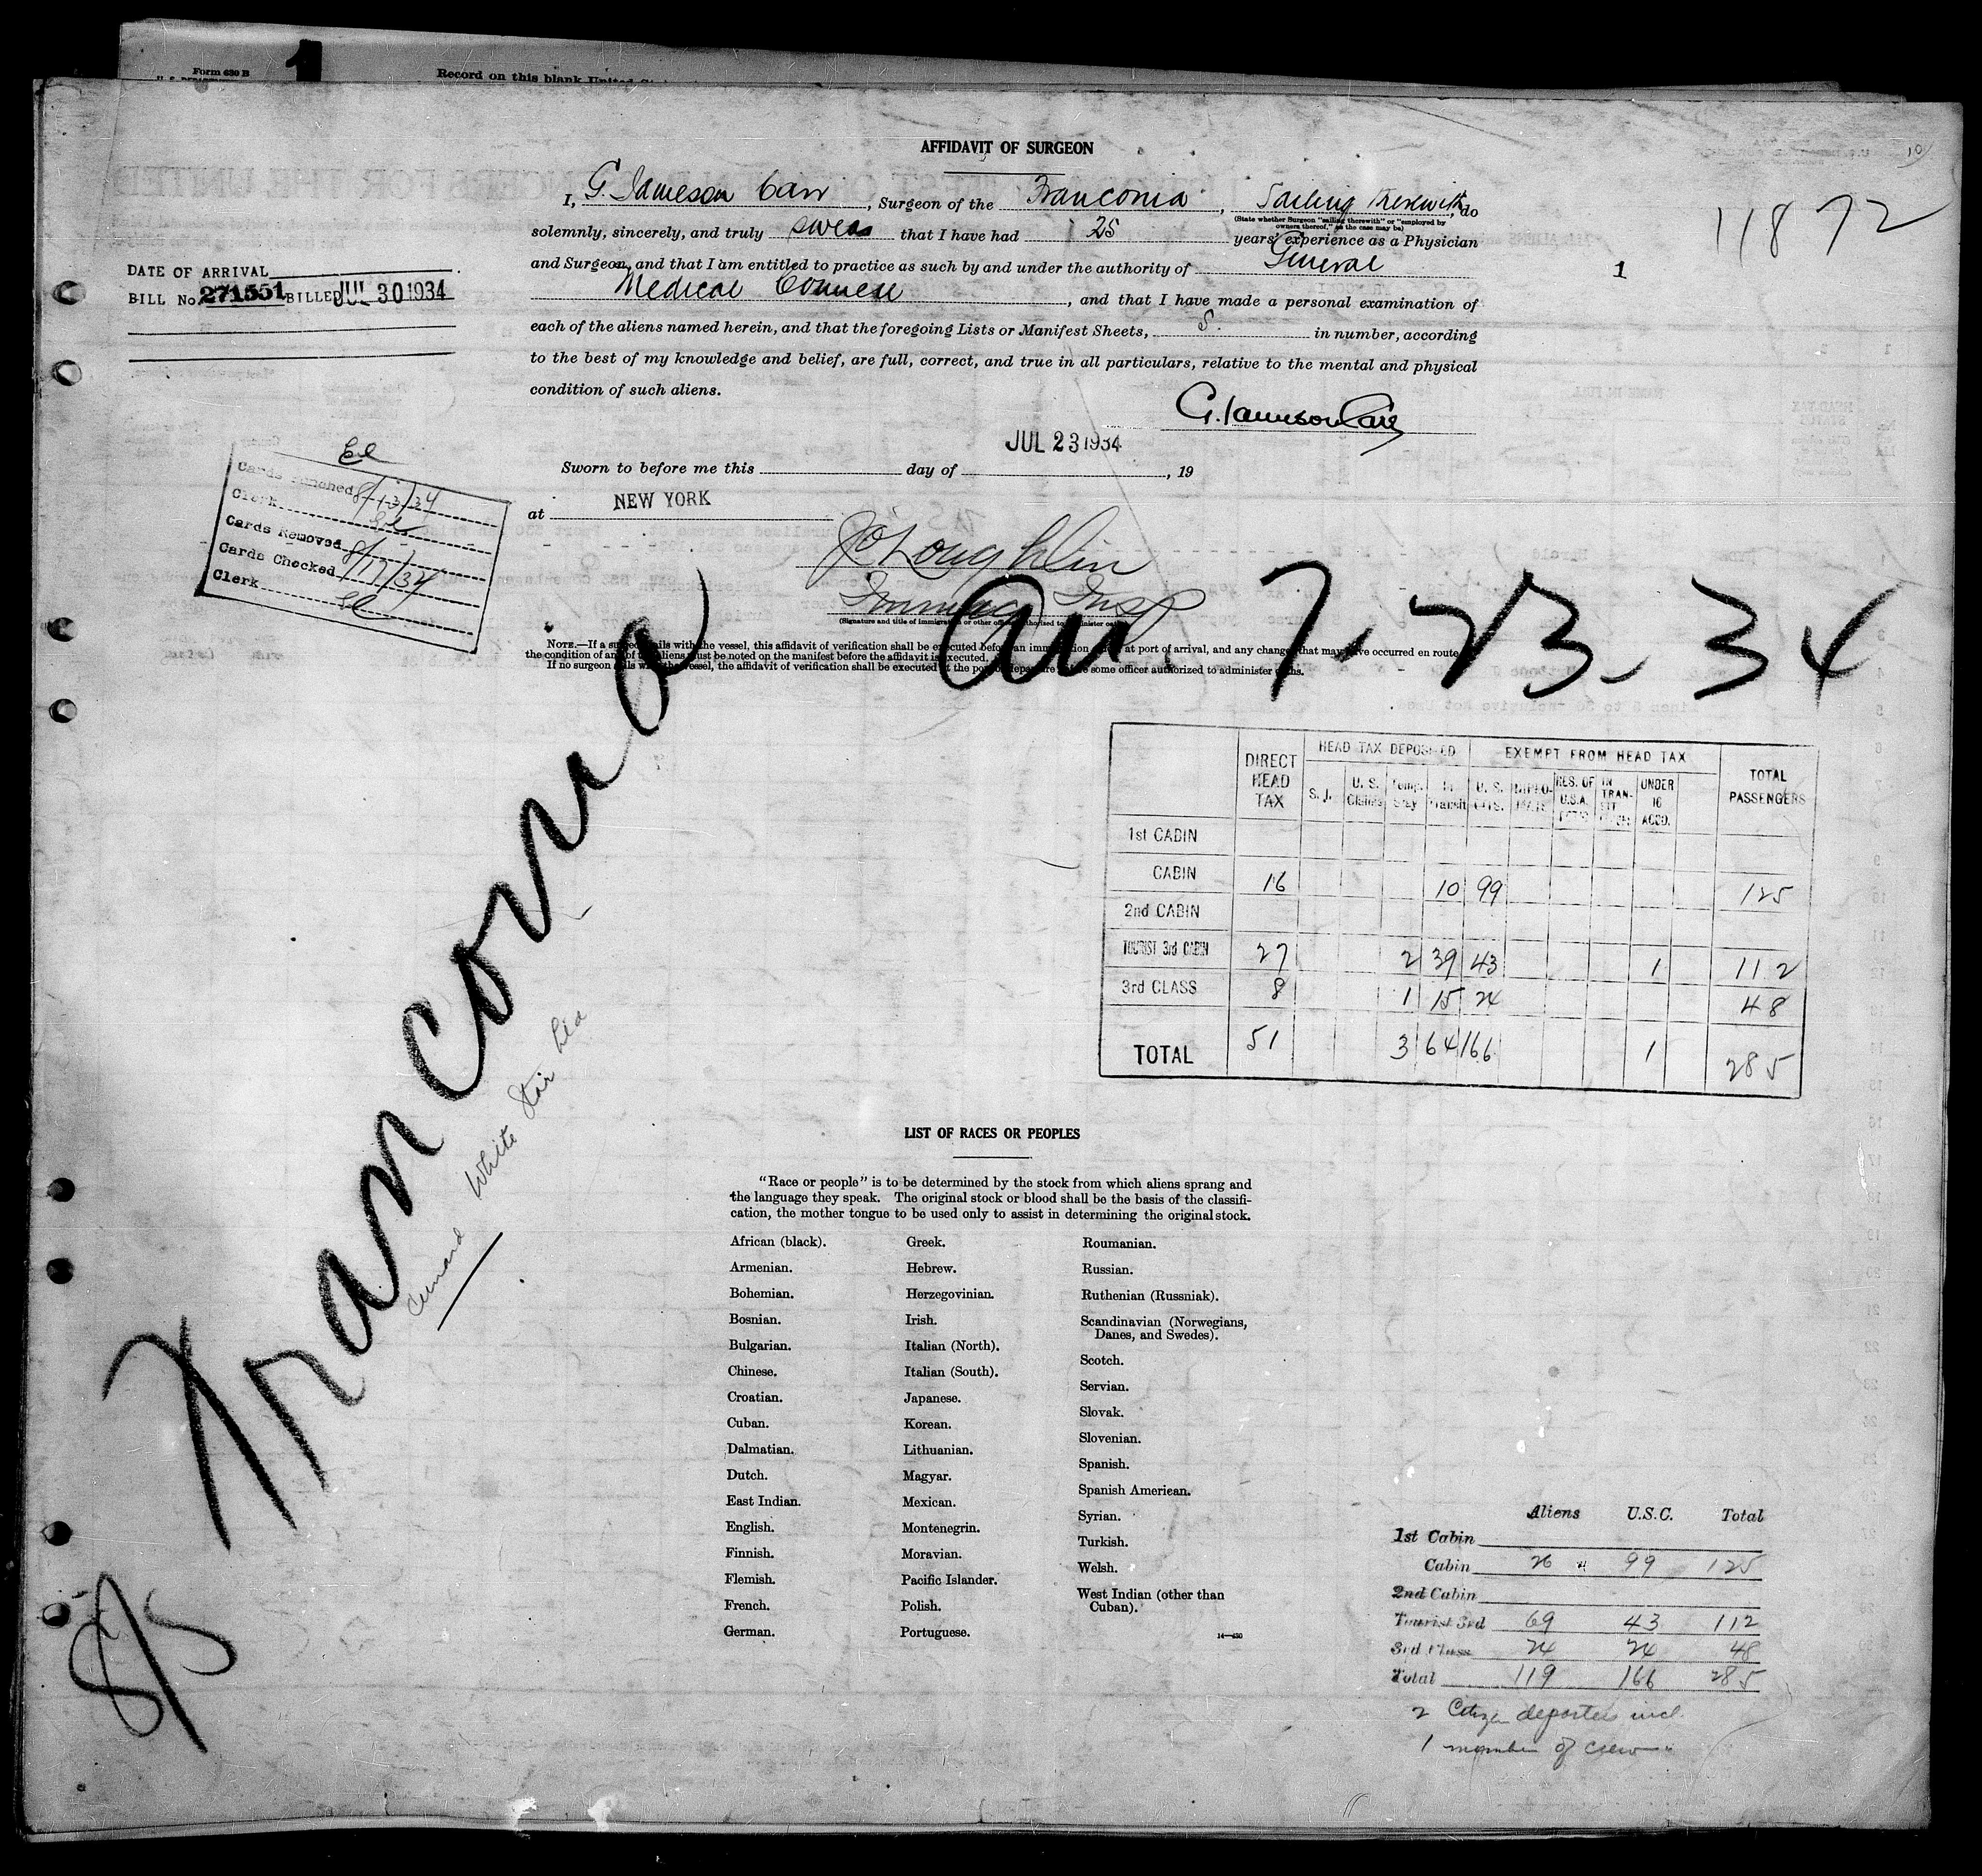 Form 630 B
1
Record on this blank United
AFFIDAVIT OF SURGEON
10
I, G. Jameson Carr, Surgeon of the Franconia, Sailing therewith, do
(State whether Surgeon "sailing therewith" or "employed by
owners thereof," as the case may be)
11872
solemnly, sincerely, and truly swear that I have had 25 years' experience as a Physician
and Surgeon, and that I am entitled to practice as such by and under the authority of General
1
Medical Council, and that I have made a personal examination of
each of the aliens named herein, and that the foregoing Lists or Manifest Sheets, in number, according
to the best of my knowledge and belief, are full, correct, and true in all particulars, relative to the mental and physical
condition of such aliens.
DATE OF ARRIVAL
BILL No. 271551 BILLED JUL 30 1934
G. Jameson Carr
JUL 23 1934
Sworn to before me this day of , 19
at NEW YORK
J C Loughlin
Immig Insp
(Signature and title of immigration or other officer authorized to administer oaths)
Cards Punched 8/13/34
Clerk
Cards Removed
Cards Checked 8/17/34
Clerk
NOTE.—If a surgeon sails with the vessel, this affidavit of verification shall be executed before an immigration officer at port of arrival, and any change that may have occurred en route
the condition of any of the aliens must be noted on the manifest before the affidavit is executed.
If no surgeon sails with the vessel, the affidavit of verification shall be executed at the port of departure before some officer authorized to administer oaths.
Franconia
Arr. 7-23-34
Cunard White Star
8/5
DIRECT HEAD TAX HEAD TAX DEPOSITED EXEMPT FROM HEAD TAX TOTAL PASSENGERS
S. J. U. S. Claims Temp. Stay In Transit U. S. CITS. DIPLO- RES. OF U.S.A. IN TRAN- SIT UNDER 16 ACCD.
1st CABIN
CABIN 16 10 99 125
2nd CABIN
TOURIST 3rd CABIN 27 2 39 43 1 112
3rd CLASS 8 1 15 24 48
TOTAL 51 3 64 166 1 285
LIST OF RACES OR PEOPLES
"Race or people" is to be determined by the stock from which aliens sprang and
the language they speak. The original stock or blood shall be the basis of the classifi-
cation, the mother tongue to be used only to assist in determining the original stock.
African (black).
Armenian.
Bohemian.
Bosnian.
Bulgarian.
Chinese.
Croatian.
Cuban.
Dalmatian.
Dutch.
East Indian.
English.
Finnish.
Flemish.
French.
German.
Greek.
Hebrew.
Herzegovinian.
Irish.
Italian (North).
Italian (South).
Japanese.
Korean.
Lithuanian.
Magyar.
Mexican.
Montenegrin.
Moravian.
Pacific Islander.
Polish.
Portuguese.
Roumanian.
Russian.
Ruthenian (Russniak).
Scandinavian (Norwegians,
Danes, and Swedes).
Scotch.
Servian.
Slovak.
Slovenian.
Spanish.
Spanish American.
Syrian.
Turkish.
Welsh.
West Indian (other than
Cuban).
14—430
Aliens U.S.C. Total
1st Cabin
Cabin 26 99 125
2nd Cabin
Tourist 3rd 69 43 112
3rd Class 24 24 48
Total 119 166 285
2 Citizen deportees incl.
1 member of crew "